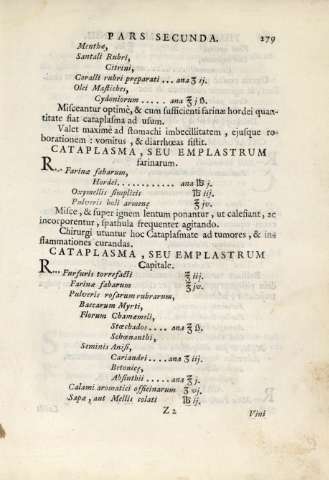 PARS SECUNDA. 179
Menthæ,
Santali Rubri,
Citrini,
Coralli rubri pręparati ... ana ʒ ij.
Olei Mastiches,
Cydoniorum ..... ana ℥ j ß.
Misceantur optimè, & cum sufficienti farinæ hordei quan-
titate fiat cataplasma ad usum.
Valet maximè ad stomachi imbecillitatem, ejusque ro-
borationem: vomitus, & diarrhœas sistit.
CATAPLASMA, SEU EMPLASTRUM
farinarum.
R... Farinæ fabarum,
Hordei............ ana ℔ j.
Oxymellis simplicis ℔ iij.
Pulveris boli armenę ℥ jv.
Misce, & super ignem lentum ponantur, ut calefiant, ac
incorporentur, spathula frequenter agitando.
Chirurgi utuntur hoc Cataplasmate ad tumores, & in-
flammationes curandas.
CATAPLASMA, SEU EMPLASTRUM
Capitale.
R... Furfuris torrefacti ℥ iij.
Farinæ fabarum ℥ jv.
Pulveris rosarum rubrarum,
Baccarum Myrti,
Florum Chamæmeli,
Stœchados.... ana ℥ ß.
Schœnanthi,
Seminis Anisi,
Coriandri.... ana ʒ iij.
Betonicę,
Absinthii ..... ana ℥ j.
Calami aromatici officinarum ʒ vj.
Sapæ, aut Mellis colati ℔ ij.
Z 2 Vini